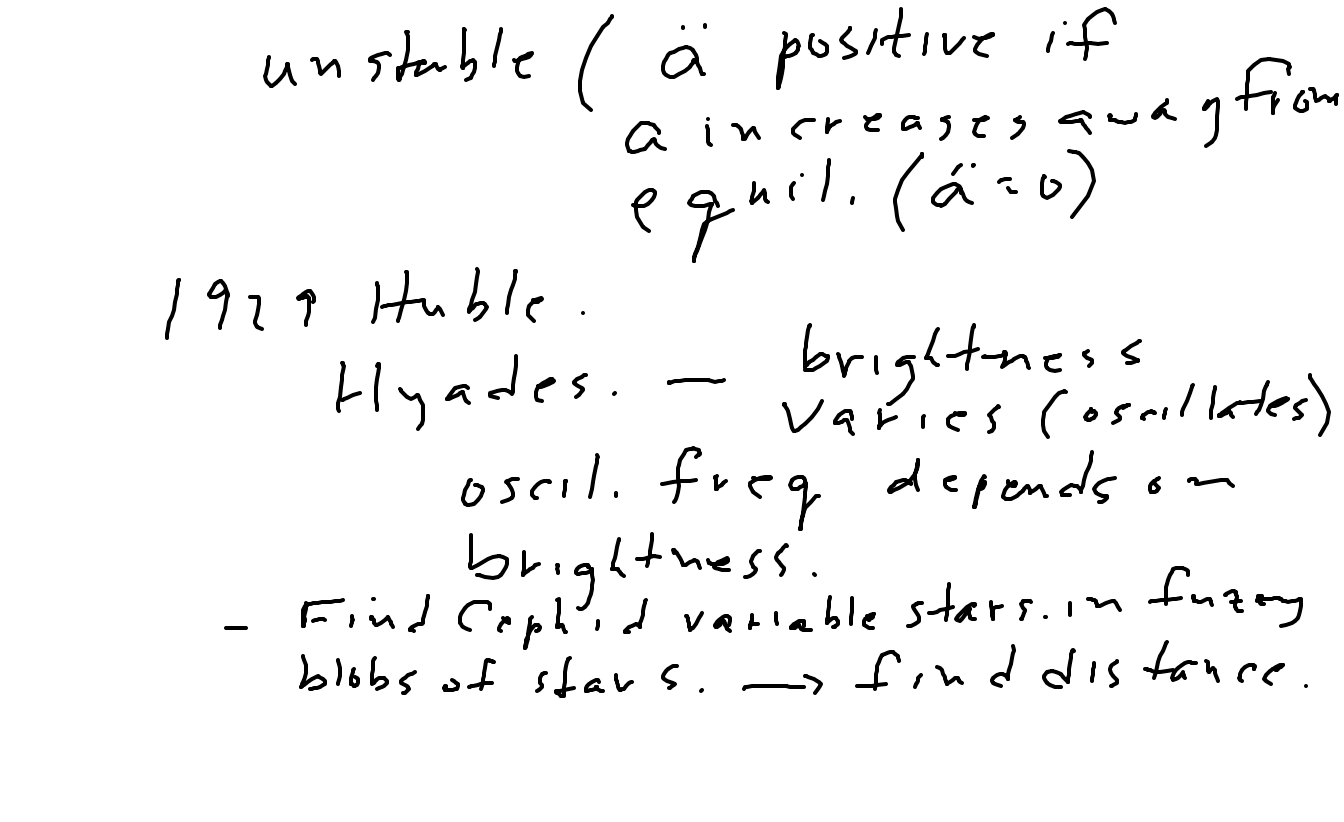 unstable ( ä positive if
a increases away from
equil. (ä = 0)
1929 Huble.
Hyades. — brightness
varies (oscillates)
oscil. freq depends on
brightness.
- Find Cephid variable stars. in fuzzy
blobs of stars. → find distance.